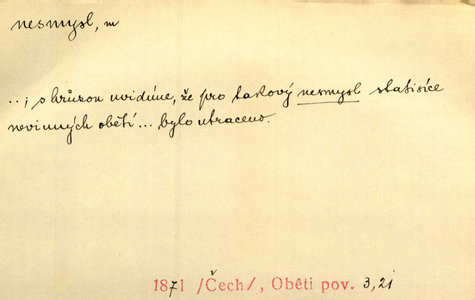 nesmysl, m
..; s hrůzou uvidíme, že pro takový nesmysl statisíce
nevinných obětí... bylo utraceno.
1871 /Čech/, Oběti pov. 3,21